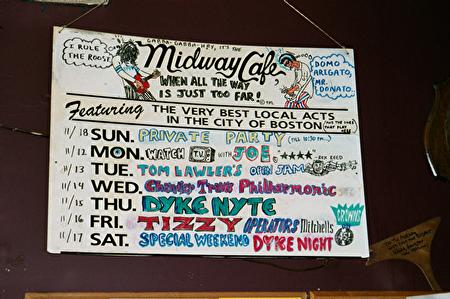 GABBA-GABBA-HEY, IT'S THE
I RULE
THE ROOST.
Midway Cafe,
DOMO
ARIGATO,
MR.
DONATO..
WHEN ALL THE WAY
IS JUST TOO FAR!
Featuring THE VERY BEST LOCAL ACTS
IN THE CITY OF BOSTON
11/18 SUN. PRIVATE PARTY (TILL 10:30 PM...)
11/12 MON. WATCH with JOE. ★★★★ -REX REED
11/13 TUE. TOM LAWLER'S OPEN JAM
11/14 WED. Philharmonic
11/15 THU. DYKE NYTE
11/16 FRI. TIZZY OPERATORS Mitchells CROWNS
11/17 SAT. SPECIAL WEEKEND DYKE NIGHT